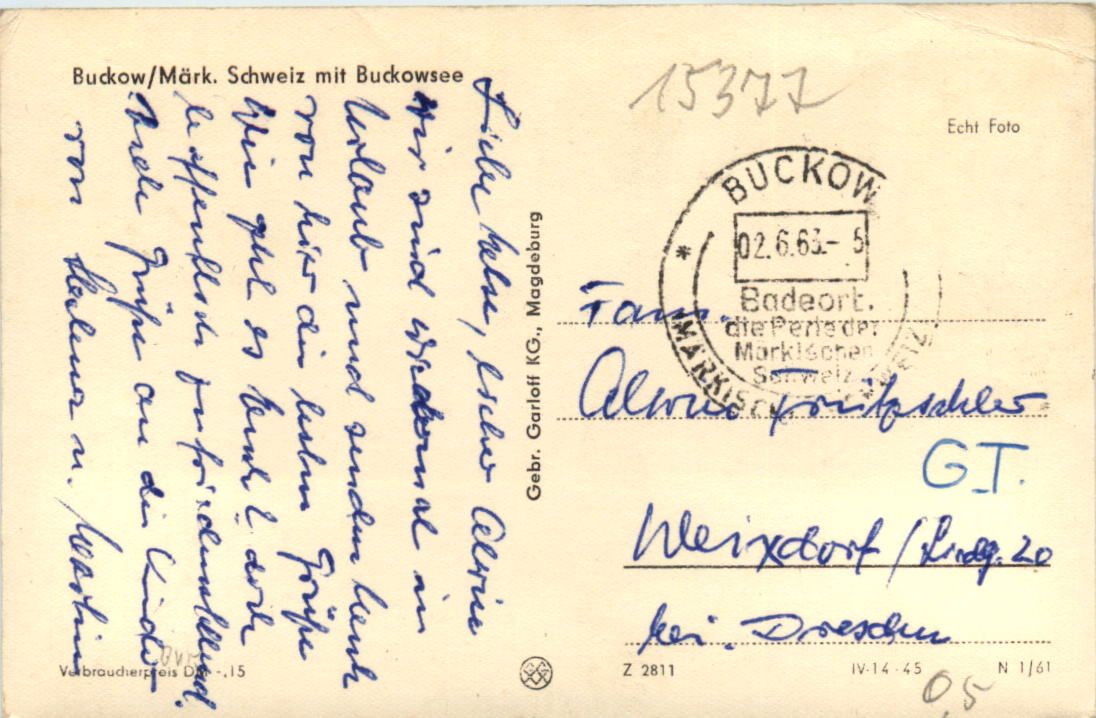 Buckow/Märk. Schweiz mit Buckowsee
15377
Echt Foto
BUCKOW
02.6.63.- 5
Badeort,
die Perle der
Märkischen
Schweiz
MÄRKISCHE SCHWEIZ
Liebe lieber Alwin
wir sind wiedermal in
Urlaub und senden Euch
von hier die besten Grüße
Wie geht es Euch? doch
hoffentlich zufriedenstellend.
Viele Grüße an die Kinder
von u. Martin
Gebr. Garloff KG., Magdeburg
Fam.
Alwin
G.T.
Weixdorf
bei Dresden
Verbraucherpreis DM -,15
Z 2811
IV-14-45
N 1/61
0,5